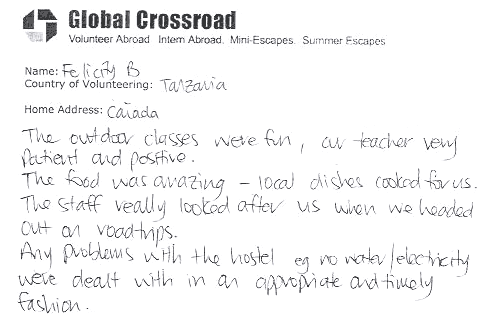 Global Crossroad
Volunteer Abroad Intern Abroad. Mini-Escapes. Summer Escapes
Name: Felicity B
Country of Volunteering: Tanzania
Home Address: Canada
The outdoor classes were fun, our teacher very
patient and positive.
The food was amazing - local dishes cooked for us.
The staff really looked after us when we headed
out on roadtrips.
Any problems with the hostel eg no water/electricity
were dealt with in an appropriate and timely
fashion.